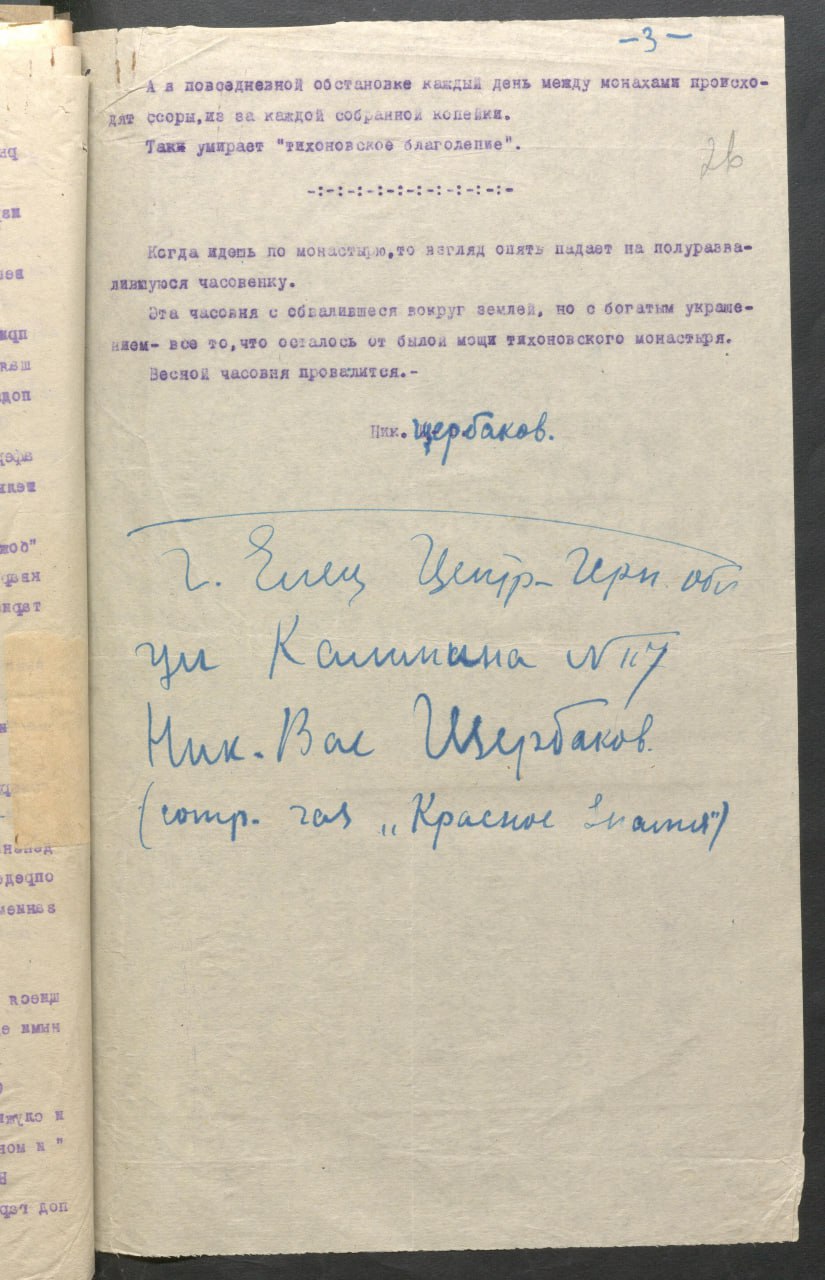 -3-
26
А я повседневной обстановке каждый день между монахами происхо-
дят ссоры,из за каждой собранной копейки.
Такш умирает "тихоновское благоление".
-:-:-:-:-:-:-:-:-:-:-
Когда идешь по монастырю,то взгляд опять падает на полуразва-
лившуюся часовенку.
Эта часовня с сбвалившеся вокруг землей, но с богатым украше-
нием- все то,что осталось от былой мощи тихоновского монастыря.
Весной часовня провалится.-
Ник. Щербаков.
г. Елец Центр-Черн. обл
ул Калинина № 117
Ник. Вас Щербаков.
(сотр. газ „Красное Знамя")